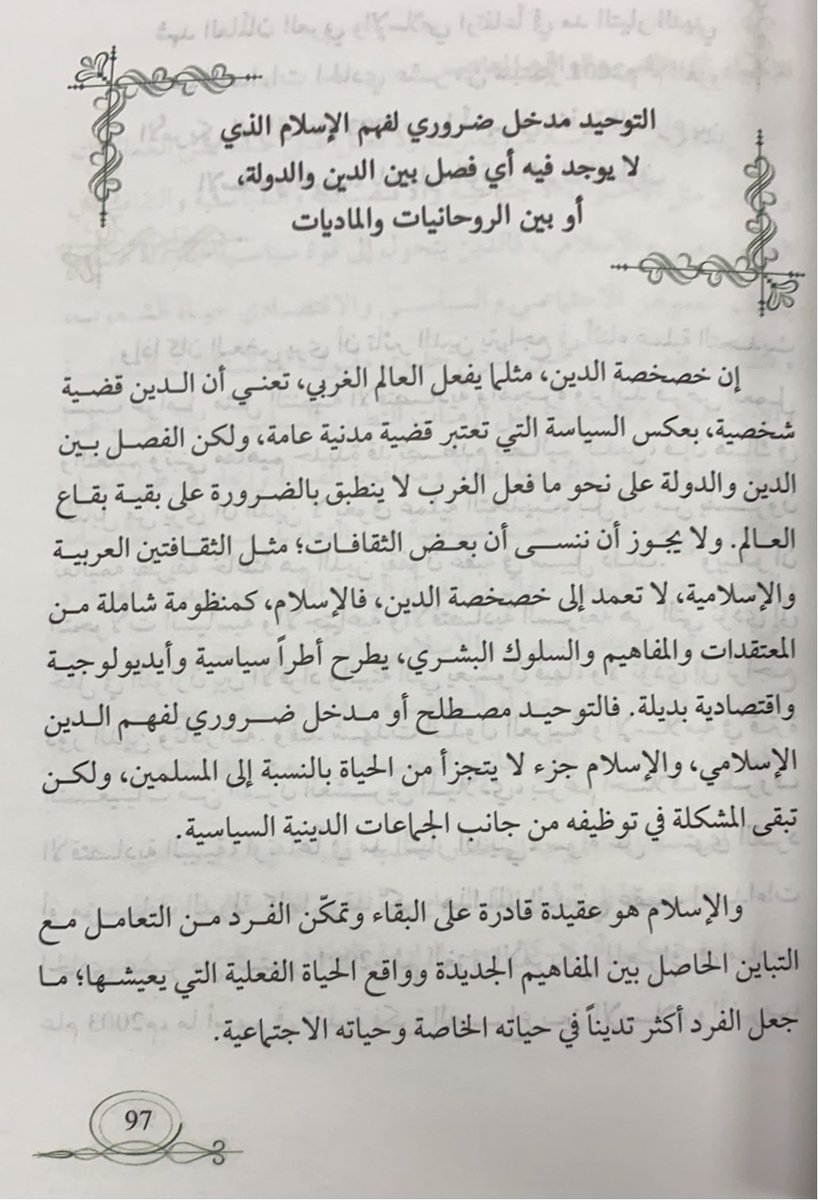 التوحيد مدخل ضروري لفهم الإسلام الذي
لا يوجد فيه أي فصل بين الدين والدولة،
أو بين الروحانيات والماديات
إن خصخصة الدين، مثلما يفعل العالم الغربي، تعني أن الدين قضية
شخصية، بعكس السياسة التي تعتبر قضية مدنية عامة، ولكن الفصل بين
الدين والدولة على نحو ما فعل الغرب لا ينطبق بالضرورة على بقية بقاع
العالم. ولا يجوز أن ننسى أن بعض الثقافات؛ مثل الثقافتين العربية
والإسلامية، لا تعمد إلى خصخصة الدين، فالإسلام، كمنظومة شاملة من
المعتقدات والمفاهيم والسلوك البشري، يطرح أطراً سياسية وأيديولوجية
واقتصادية بديلة. فالتوحيد مصطلح أو مدخل ضروري لفهم الدين
الإسلامي، والإسلام جزء لا يتجزأ من الحياة بالنسبة إلى المسلمين، ولكن
تبقى المشكلة في توظيفه من جانب الجماعات الدينية السياسية.
والإسلام هو عقيدة قادرة على البقاء وتمكّن الفرد من التعامل مع
التباين الحاصل بين المفاهيم الجديدة وواقع الحياة الفعلية التي يعيشها؛ ما
جعل الفرد أكثر تديناً في حياته الخاصة وحياته الاجتماعية.
97